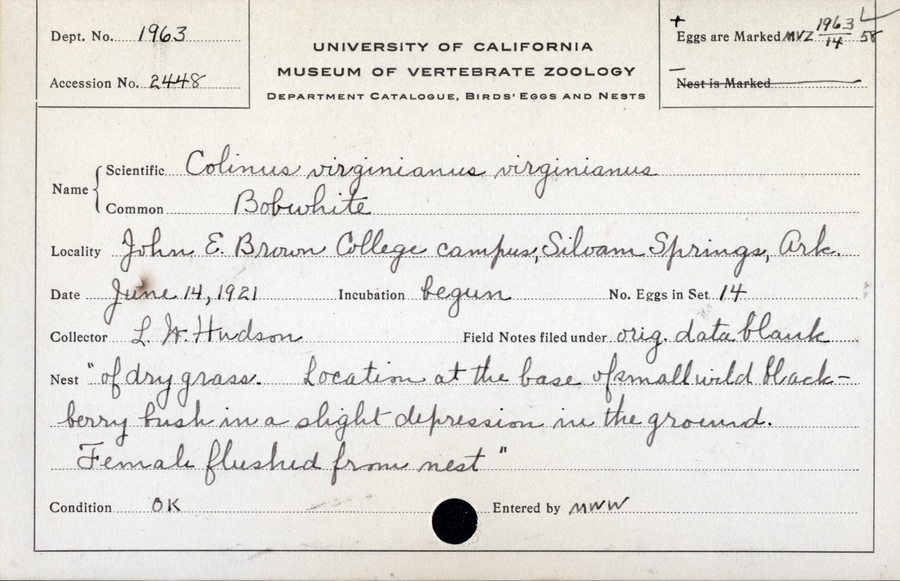 Dept. No. 1963
Accession No. 2448
UNIVERSITY OF CALIFORNIA
MUSEUM OF VERTEBRATE ZOOLOGY
DEPARTMENT CATALOGUE, BIRDS' EGGS AND NESTS
+
Eggs are Marked MVZ 1963/14 58
–
Nest is Marked
Name { Scientific Colinus virginianus virginianus
Common Bobwhite
Locality John E. Brown College campus, Siloam Springs, Ark.
Date June 14, 1921 Incubation begun No. Eggs in Set 14
Collector L. W. Hudson Field Notes filed under orig. data blank
Nest "of dry grass. Location at the base of small wild black-
berry bush in a slight depression in the ground.
Female flushed from nest"
Condition OK Entered by MWW